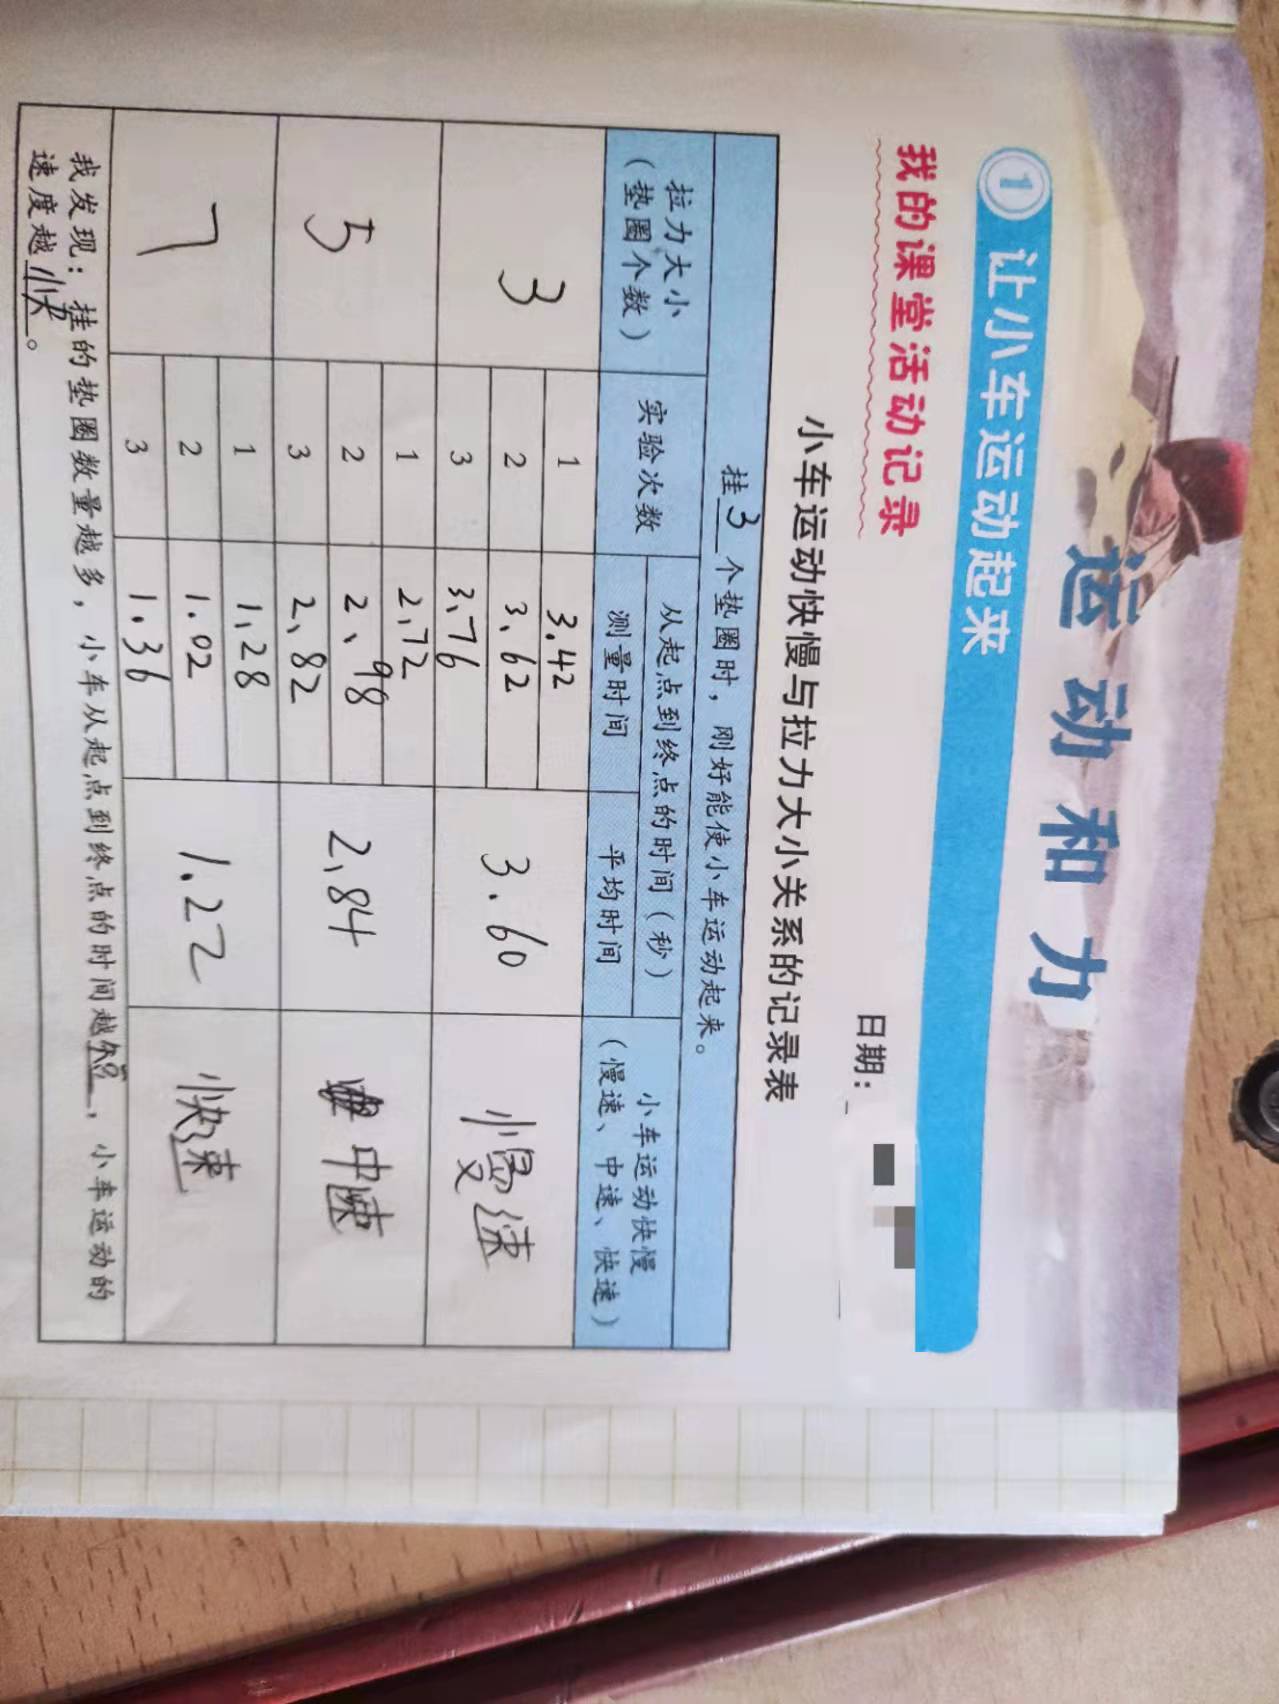 运动和力
1 让小车运动起来
我的课堂活动记录
日期：
小车运动快慢与拉力大小关系的记录表
挂3个垫圈时，刚好能使小车运动起来。
拉力大小
（垫圈个数）
实验次数
从起点到终点的时间（秒）
测量时间
平均时间
小车运动快慢
（慢速、中速、快速）
3
1
3.42
2
3.62
3
3.76
3.60
慢速
5
1
2.72
2
2.98
3
2.82
2.84
中速
7
1
1.28
2
1.02
3
1.36
1.22
快速
我发现：挂的垫圈数量越多，小车从起点到终点的时间越短，小车运动的
速度越快。